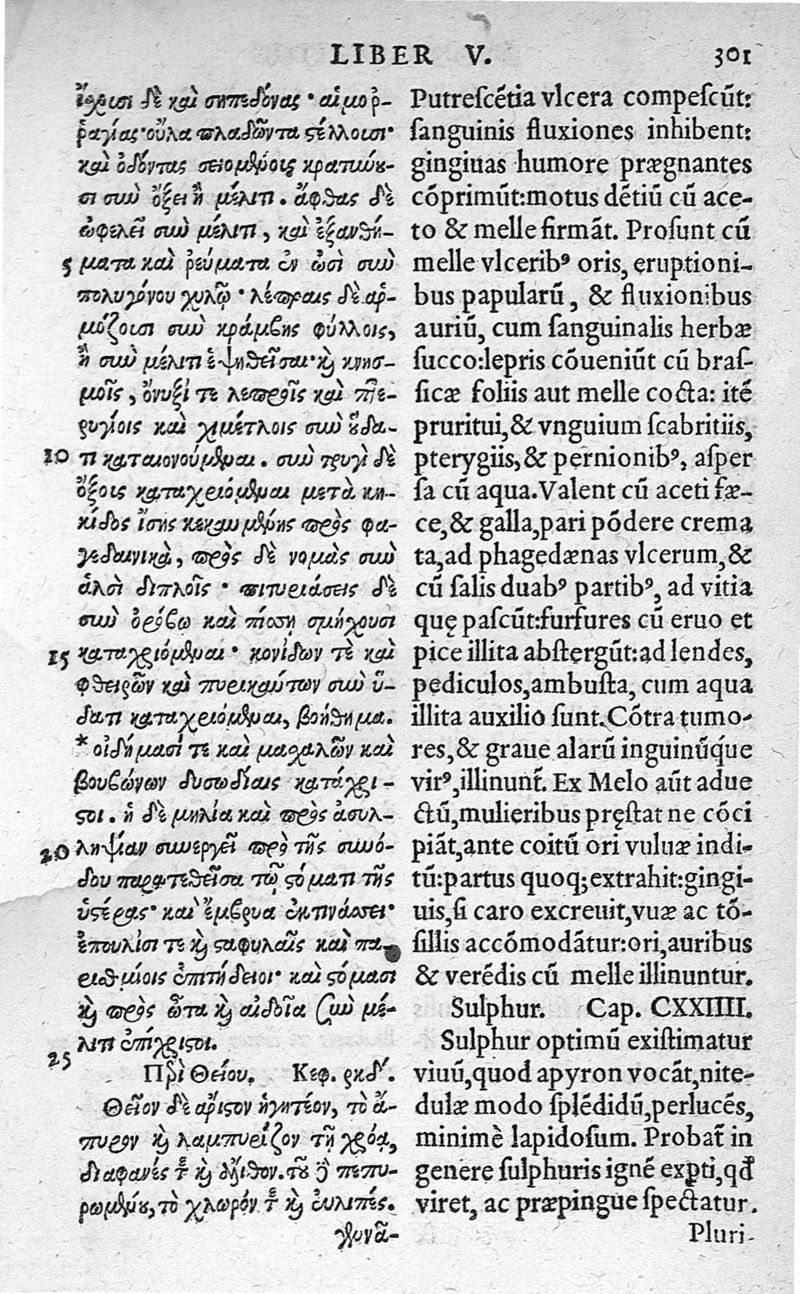 LIBER V. 301
ἴσχουσι δὲ καὶ σηπεδόνας· αἱμοῤ-
ῥαγίας· οὖλα πλαδῶντα στέλλουσι·
καὶ ὀδόντας σειομένους κρατύνου-
σι σὺν ὄξει ἢ μέλιτι. ἄφθας δὲ
ὠφελεῖ σὺν μέλιτι, καὶ ἐξανθή-
5 ματα καὶ ῥεύματα ἐν ὠσὶ σὺν
πολυγόνου χυλῷ· λέπραις δὲ ἁρ-
μόζουσι σὺν κράμβης φύλλοις,
ἢ σὺν μέλιτι ἑψηθεῖσαι· καὶ κνησ-
μοῖς, ὄνυξί τε λεπροῖς καὶ πτε-
ρυγίοις καὶ χιμέτλοις σὺν ὕδα-
10 τι καταιονούμεναι. σὺν τρυγὶ δὲ
ὄξους καταχριόμεναι μετὰ κη-
κίδος ἴσης κεκαυμένης πρὸς φα-
γεδαινικὰ, πρὸς δὲ νομὰς σὺν
ἁλσὶ διπλοῖς· πιτυριάσεις δὲ
σὺν ὀρόβῳ καὶ πίσσῃ σμήχουσι
15 καταχριόμεναι· κονίδων τὲ καὶ
φθειρῶν καὶ πυρικαύτων σὺν ὕ-
δατι καταχριόμεναι, βοήθημα.
*οἰδήμασί τε καὶ μασχαλῶν καὶ
βουβώνων δυσωδίαις κατάχρι-
στοι. ἡ δὲ μηλία καὶ πρὸς ἀσυλ-
20 ληψίαν συνεργεῖ πρὸ τῆς συνό-
δου παρατεθεῖσα τῷ στόματι τῆς
ὑστέρας· καὶ ἔμβρυα ἐκτινάσσει·
ἐπουλίσι τε καὶ σταφυλαῖς καὶ πα-
ρισθμίοις ἐπιτήδειοι· καὶ στόμασι
καὶ πρὸς ὦτα καὶ αἰδοῖα σὺν μέ-
λιτι ἐπίχριστοι.
25 Περὶ Θείου. Κεφ. ρκδʹ.
Θεῖον δὲ ἄριστον ἡγητέον, τὸ ἄ-
πυρον καὶ λαμπυρίζον τῇ χρόᾳ,
διαφανές τε καὶ ἄλιθον. τοῦ δὲ πεπυ-
ρωμένου, τὸ χλωρόν τε καὶ εὐλιπές.
γεννᾶ-
Putreſcẽtia vlcera compeſcũt:
ſanguinis fluxiones inhibent:
gingiuas humore prægnantes
cõprimũt:motus dẽtiũ cũ ace-
to & melle firmãt. Proſunt cũ
melle vlceribꝰ oris, eruptioni-
bus papularũ, & fluxionibus
auriũ, cum ſanguinalis herbæ
ſucco:lepris cõueniũt cũ braſ-
ſicæ foliis aut melle cocta: itẽ
pruritui,& vnguium ſcabritiis,
pterygiis,& pernionibꝰ, aſper
ſa cũ aqua.Valent cũ aceti fæ-
ce,& galla,pari põdere crema
ta,ad phagedænas vlcerum,&
cũ ſalis duabꝰ partibꝰ, ad vitia
quę paſcũt:furfures cũ eruo et
pice illita abſtergũt:ad lendes,
pediculos,ambuſta, cum aqua
illita auxilio ſunt.Cõtra tumo-
res,& graue alarũ inguinũq́ue
virꝰ,illinunt̃. Ex Melo aũt adue
ctũ,mulieribus pręſtat ne cõci
piãt,ante coitũ ori vuluæ indi-
tũ:partus quoq;extrahit:gingi-
uis,ſi caro excreuit,vuæ ac tõ-
ſillis accõmodãtur:ori,auribus
& verẽdis cũ melle illinuntur.
Sulphur. Cap. CXXIIII.
Sulphur optimũ exiſtimatur
viuũ,quod apyron vocãt,nite-
dulæ modo ſplẽdidũ,perlucẽs,
minimè lapidoſum. Probat̃ in
genere ſulphuris ignẽ exꝑti,qđ
viret, ac præpingue ſpectatur.
Pluri-